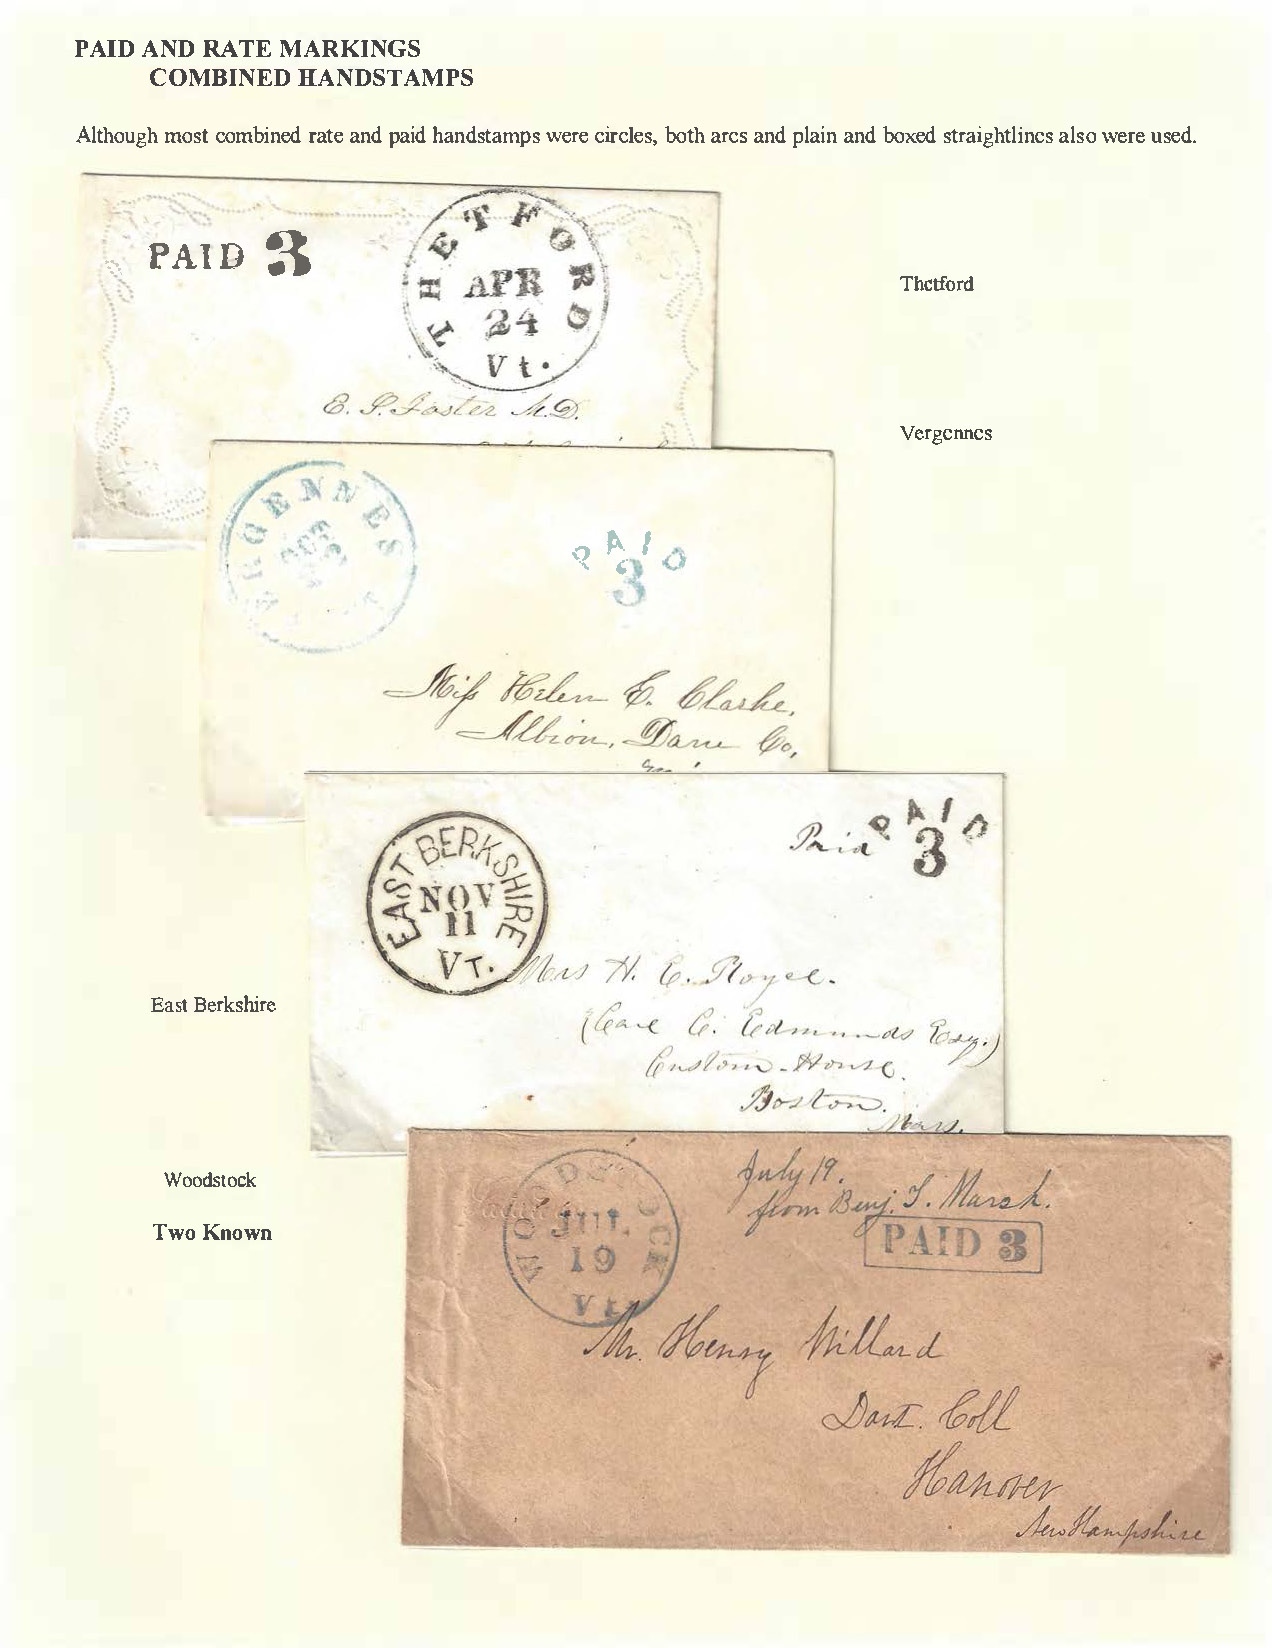 PAID AND RATE MARKINGS
COMBINED HANDSTAMPS
Although most combined rate and paid handstamps were circles, both arcs and plain and boxed straightlines also were used.
PAID 3
THETFORD
APR
24
Vt.
E. P. Foster M.D.
Thetford
Vergennes
ERGENNES
PAID
3
Miss Helen E. Clarke,
Albion, Dane Co,
EAST BERKSHIRE
NOV
11
VT.
Paid
PAID
3
Mrs H. E. Royce.
(Care C. Edmunds Esq.)
Custom-House.
Boston.
Mass.
East Berkshire
Woodstock
Two Known
WOODSTOCK
JUL.
19
Vt.
July 19.
from Benj. T. Marsh.
PAID 3
Mr. Henry Willard
Dart. Coll
Hanover
New Hampshire